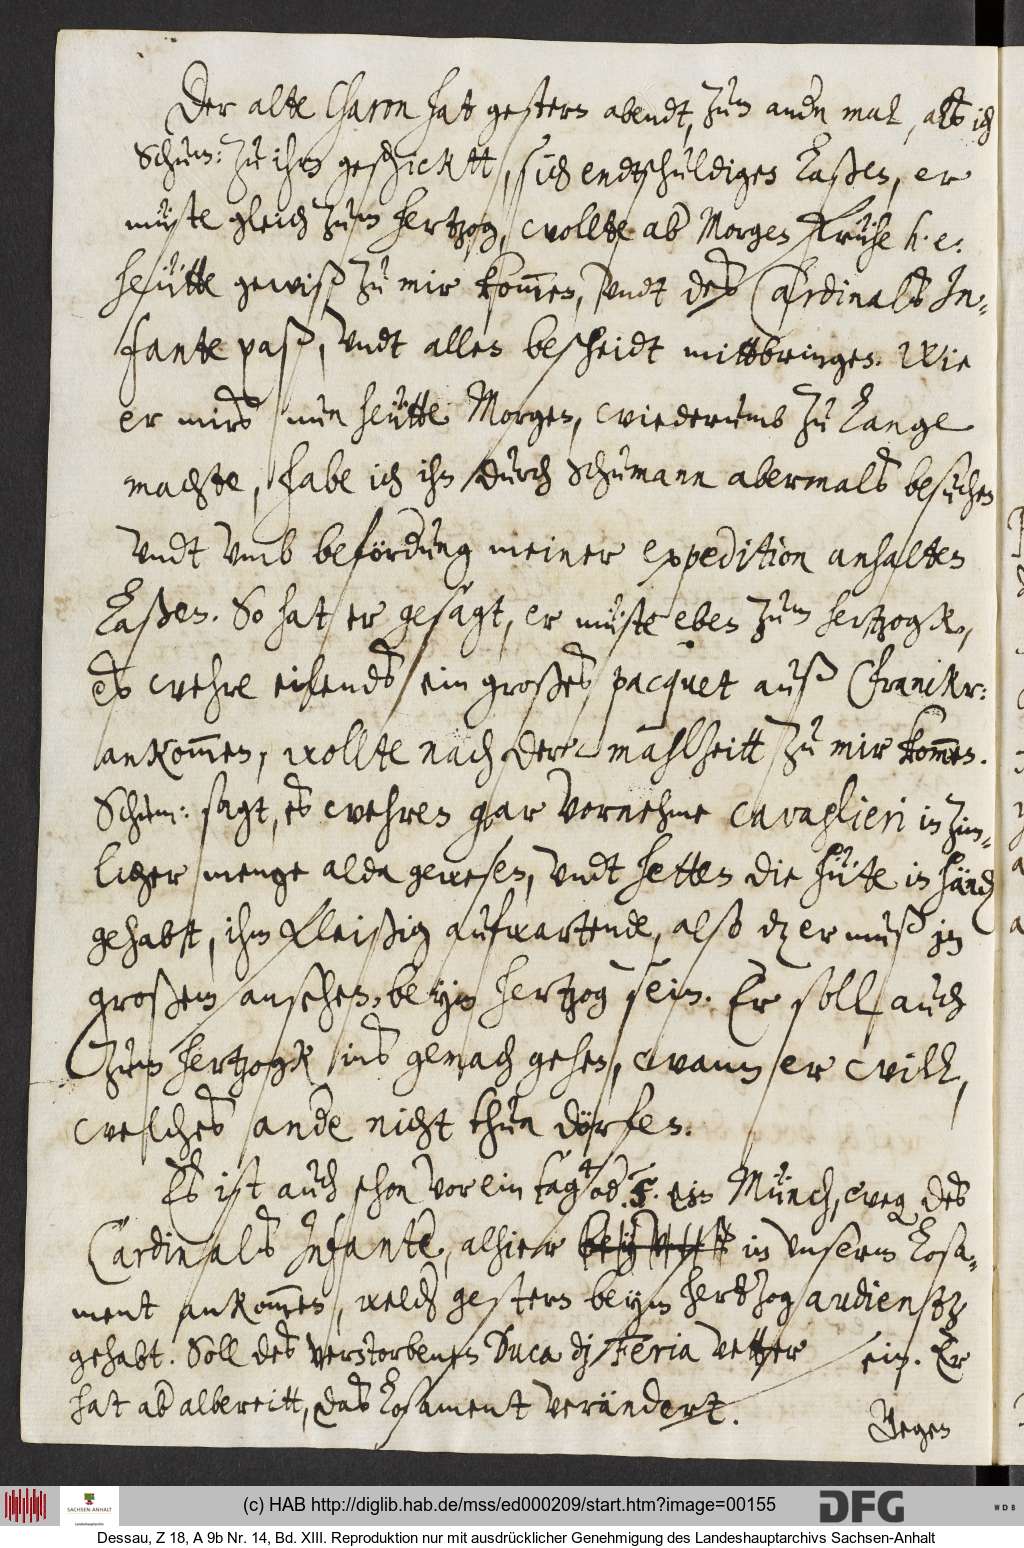 Der alte Charon hat gestern abendt, zum andn mal, alß ich
Schum: zu ihm geschicktt, sich endtschuldigen laßen, er
müste gleich zum hertzog, wollte ab Morgen frühe h. e.
heütte gewiß zu mir kom̅en, vndt des Cardinals In-
fante paß, vndt alles bescheidt mittbringen. Wie
er mirs nun heütte Morgen, wiederumb zu lange
machte, habe ich ihn durch Schumann abermals besuchen
vndt vmb beförderung meiner expedition anhalten
laßen. So hat er gesagt, er müste eben zum hertzogk,
es wehre eilends ein großes pacquet auß Franckr:
ankom̅en, wollte nach der mahlzeitt zu mir kom̅en.
Schum: sagt, es wehren gar vornehme cavaglieri in zim-
licher menge alda gewesen, vndt hetten die hüte in händ
gehabt, ihm fleißig aufwartende, also dz er muß in
großem ansehen beym hertzog sein. Er soll auch
zum hertzogk ins gemach gehen, wann er will,
welches ande nicht thun dörfen.
Es ist auch schon vor ein tag 4 od. 5. ein Münch, weg des
Cardinals Infante, alhier in vnserm losa-
ment ankom̅en, welch gestern beym hertzog audientz
gehabt. Soll des verstorbenen Duca di Feria vetter sein. Er
hat ab albereitt, das losament verändert.
Gegen
(c) HAB http://diglib.hab.de/mss/ed000209/start.htm?image=00155
SACHSEN-ANHALT
DFG
WDB
Dessau, Z 18, A 9b Nr. 14, Bd. XIII. Reproduktion nur mit ausdrücklicher Genehmigung des Landeshauptarchivs Sachsen-Anhalt